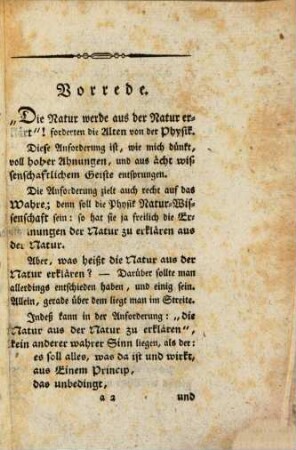 Vorrede.
„Die Natur werde aus der Natur er-
klärt“! forderten die Alten von der Physik.
Diese Anforderung ist, wie mich dünkt,
voll hoher Ahnungen, und aus ächt wis
senschaftlichem Geiste entsprungen.
Die Anforderung zielt auch recht auf das
Wahre; denn soll die Physik Natur-Wis-
senschaft sein: so hat sie ja freilich die Er-
scheinungen der Natur zu erklären aus
der Natur.
Aber, was heißt die Natur aus der
Natur erklären? — Darüber sollte man
allerdings entschieden haben, und einig sein.
Allein, gerade über dem liegt man im Streite.
Indeß kann in der Anforderung: „die
Natur aus der Natur zu erklären“,
kein anderer wahrer Sinn liegen, als der:
es soll alles, was da ist und wirkt,
aus Einem Princip,
das unbedingt,
a 2 und